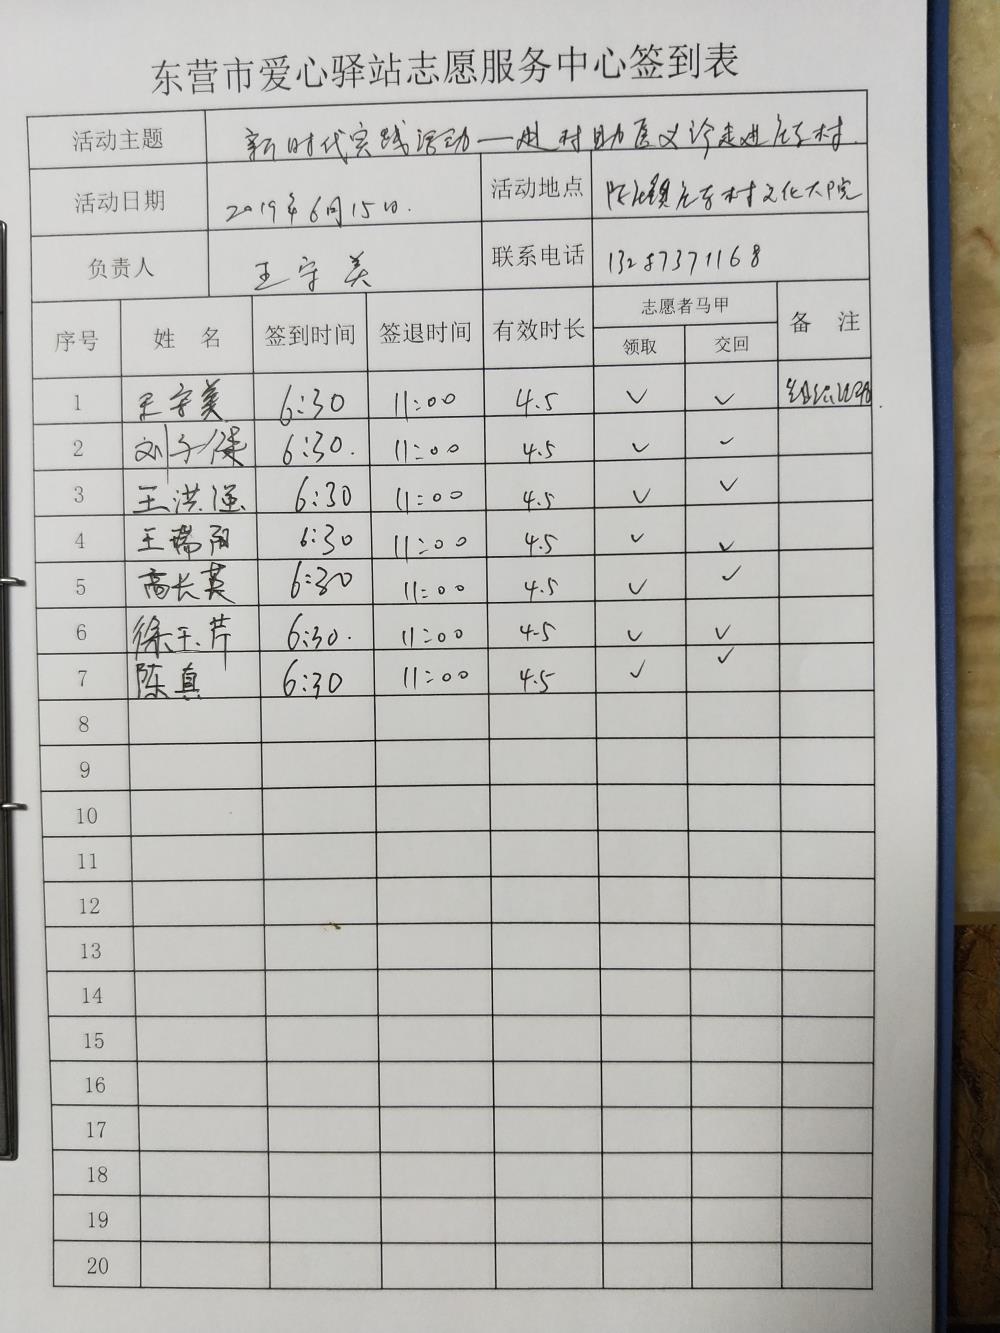 东营市爱心驿站志愿服务中心签到表
活动主题 新时代实践活动一赴村助医义诊走进庄东村
活动日期 2019年6月15日. 活动地点 陈庄镇庄东村文化大院
负责人 王守美 联系电话 13287371168
序号 姓 名 签到时间 签退时间 有效时长 志愿者马甲 备 注
领取 交回
1 王守美 6:30 11:00 4.5 ✓ ✓
2 刘子 6:30. 11:00 4.5 ✓ ✓
3 王洪强 6:30 11:00 4.5 ✓ ✓
4 王瑞阳 6:30 11:00 4.5 ✓ ✓
5 高长英 6:30 11:00 4.5 ✓ ✓
6 徐玉芹 6:30. 11:00 4.5 ✓ ✓
7 陈真 6:30 11:00 4.5 ✓ ✓
8
9
10
11
12
13
14
15
16
17
18
19
20